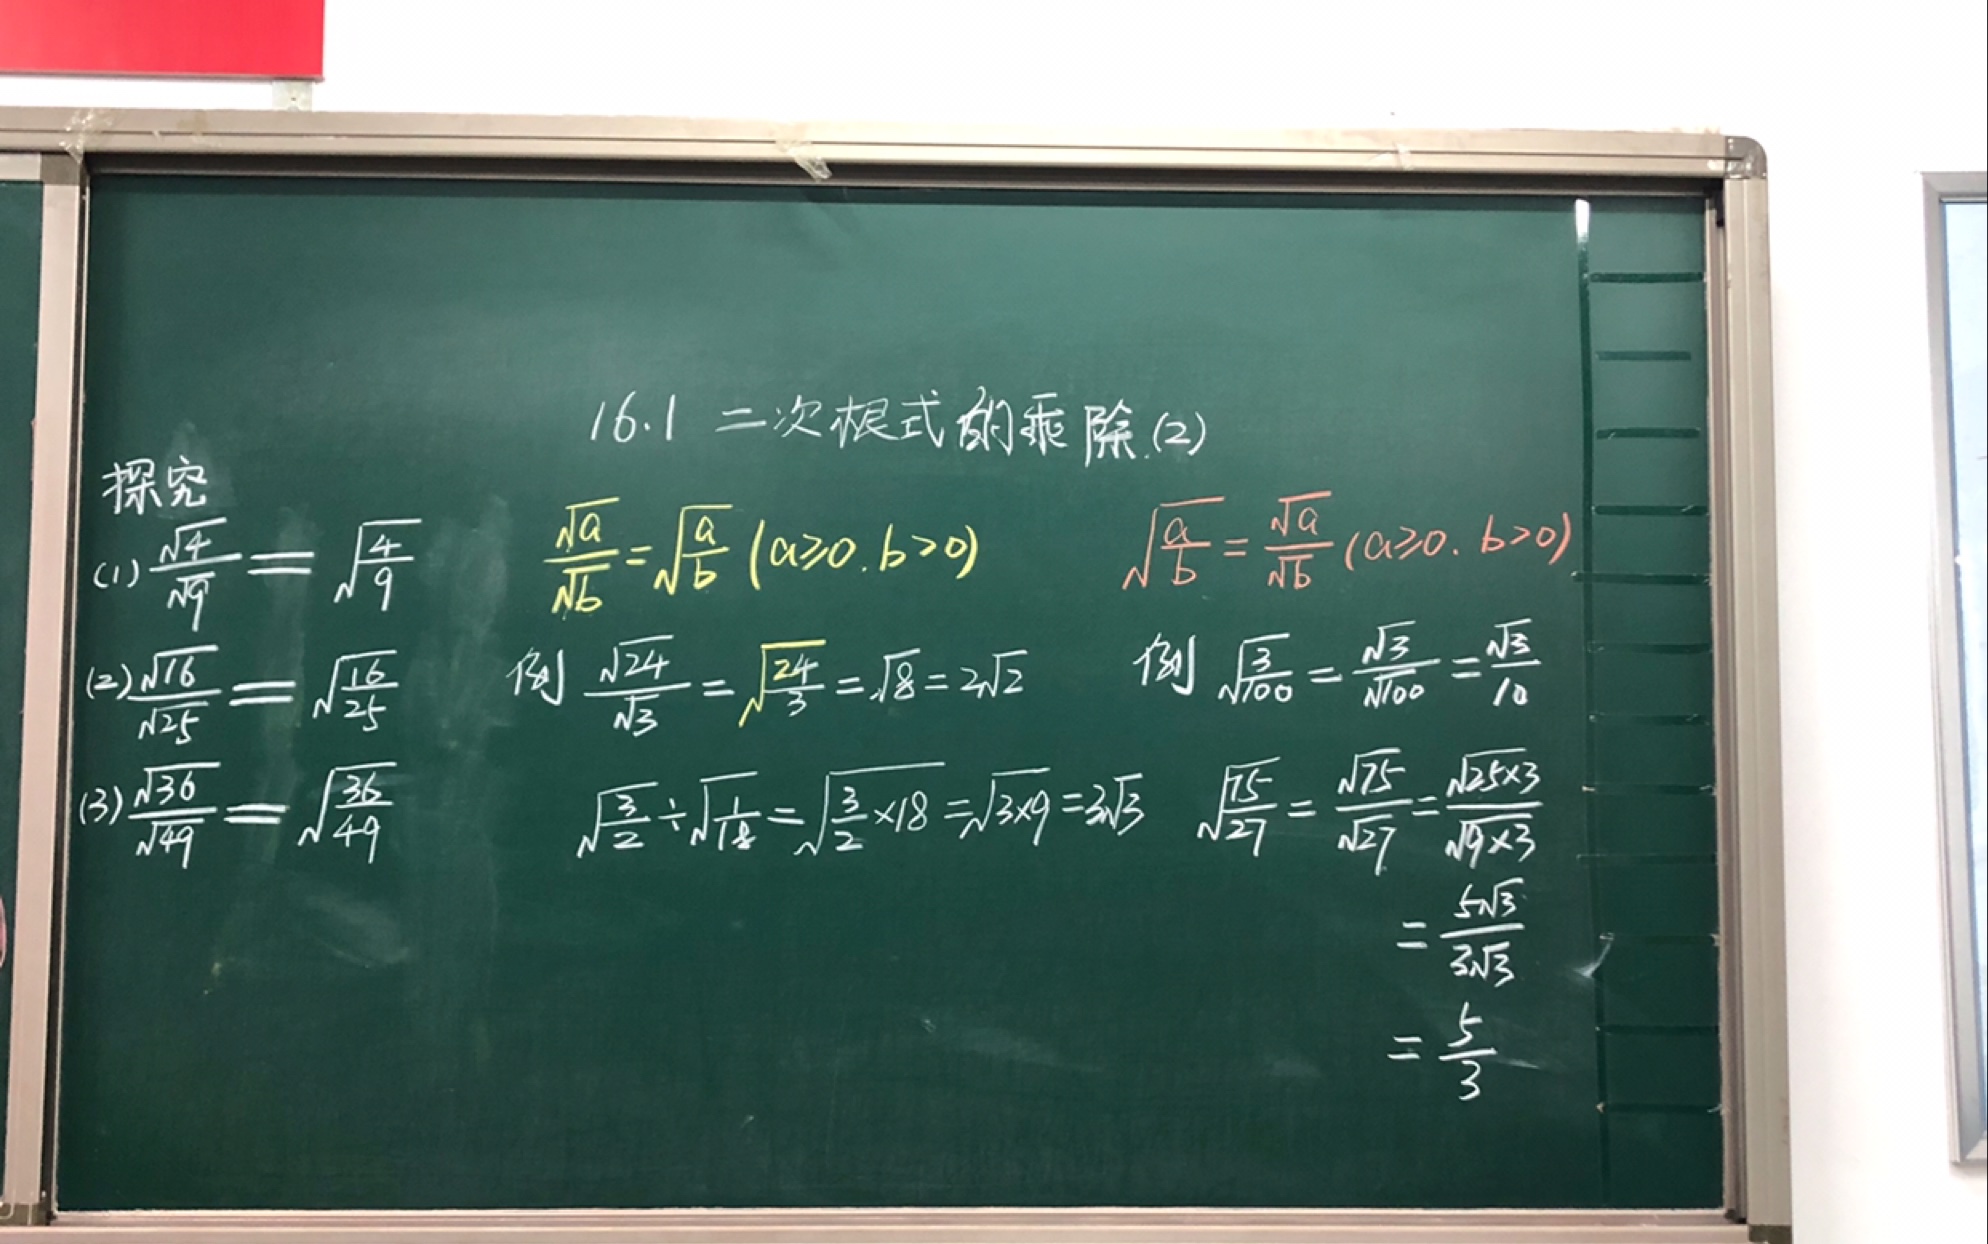 16.1 二次根式的乘除(2)
探究
(1) √4/√9 = √(4/9)
(2) √16/√25 = √(16/25)
(3) √36/√49 = √(36/49)
√a/√b = √(a/b) (a≥0. b>0)
例 √24/√3 = √(24/3) = √8 = 2√2
√(3/2) ÷ √(1/18) = √(3/2×18) = √(3×9) = 3√3
√(a/b) = √a/√b (a≥0. b>0)
例 √(3/100) = √3/√100 = √3/10
√(75/27) = √75/√27 = √(25×3)/√(9×3)
= 5√3/3√3
= 5/3